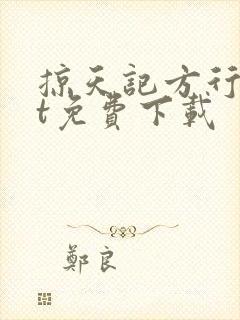 掠天記方行
t免費下載
鄭良